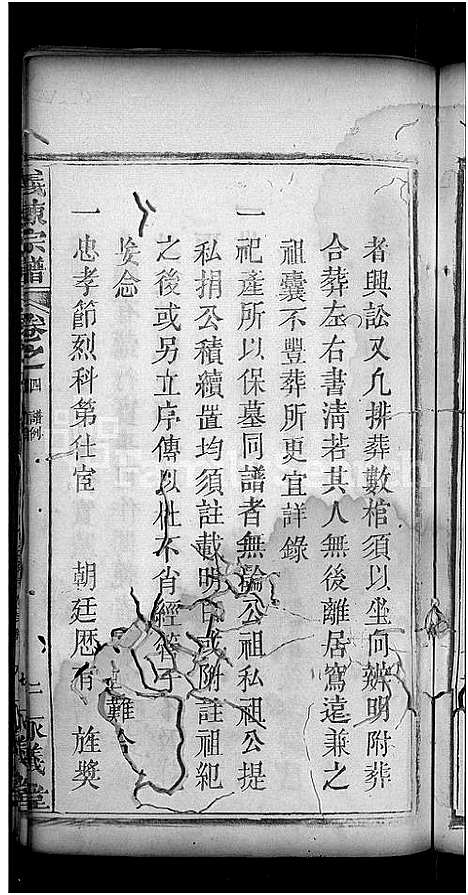 者興訟又凢排葬數棺須以坐向辨明附葬
合葬左右書淸若其人無後離居窵遠兼之
祖囊不豐葬所更宜詳錄
一祀產所以保墓同譜者無論公祖私祖公提
私捐公積續置均須註載明白或附註祖紀
之後或另立序傳以杜不肖經
妄念
一忠孝節烈科第仕宦 朝廷歷有 旌奬
義陳宗譜 卷之四 譜例 義堂